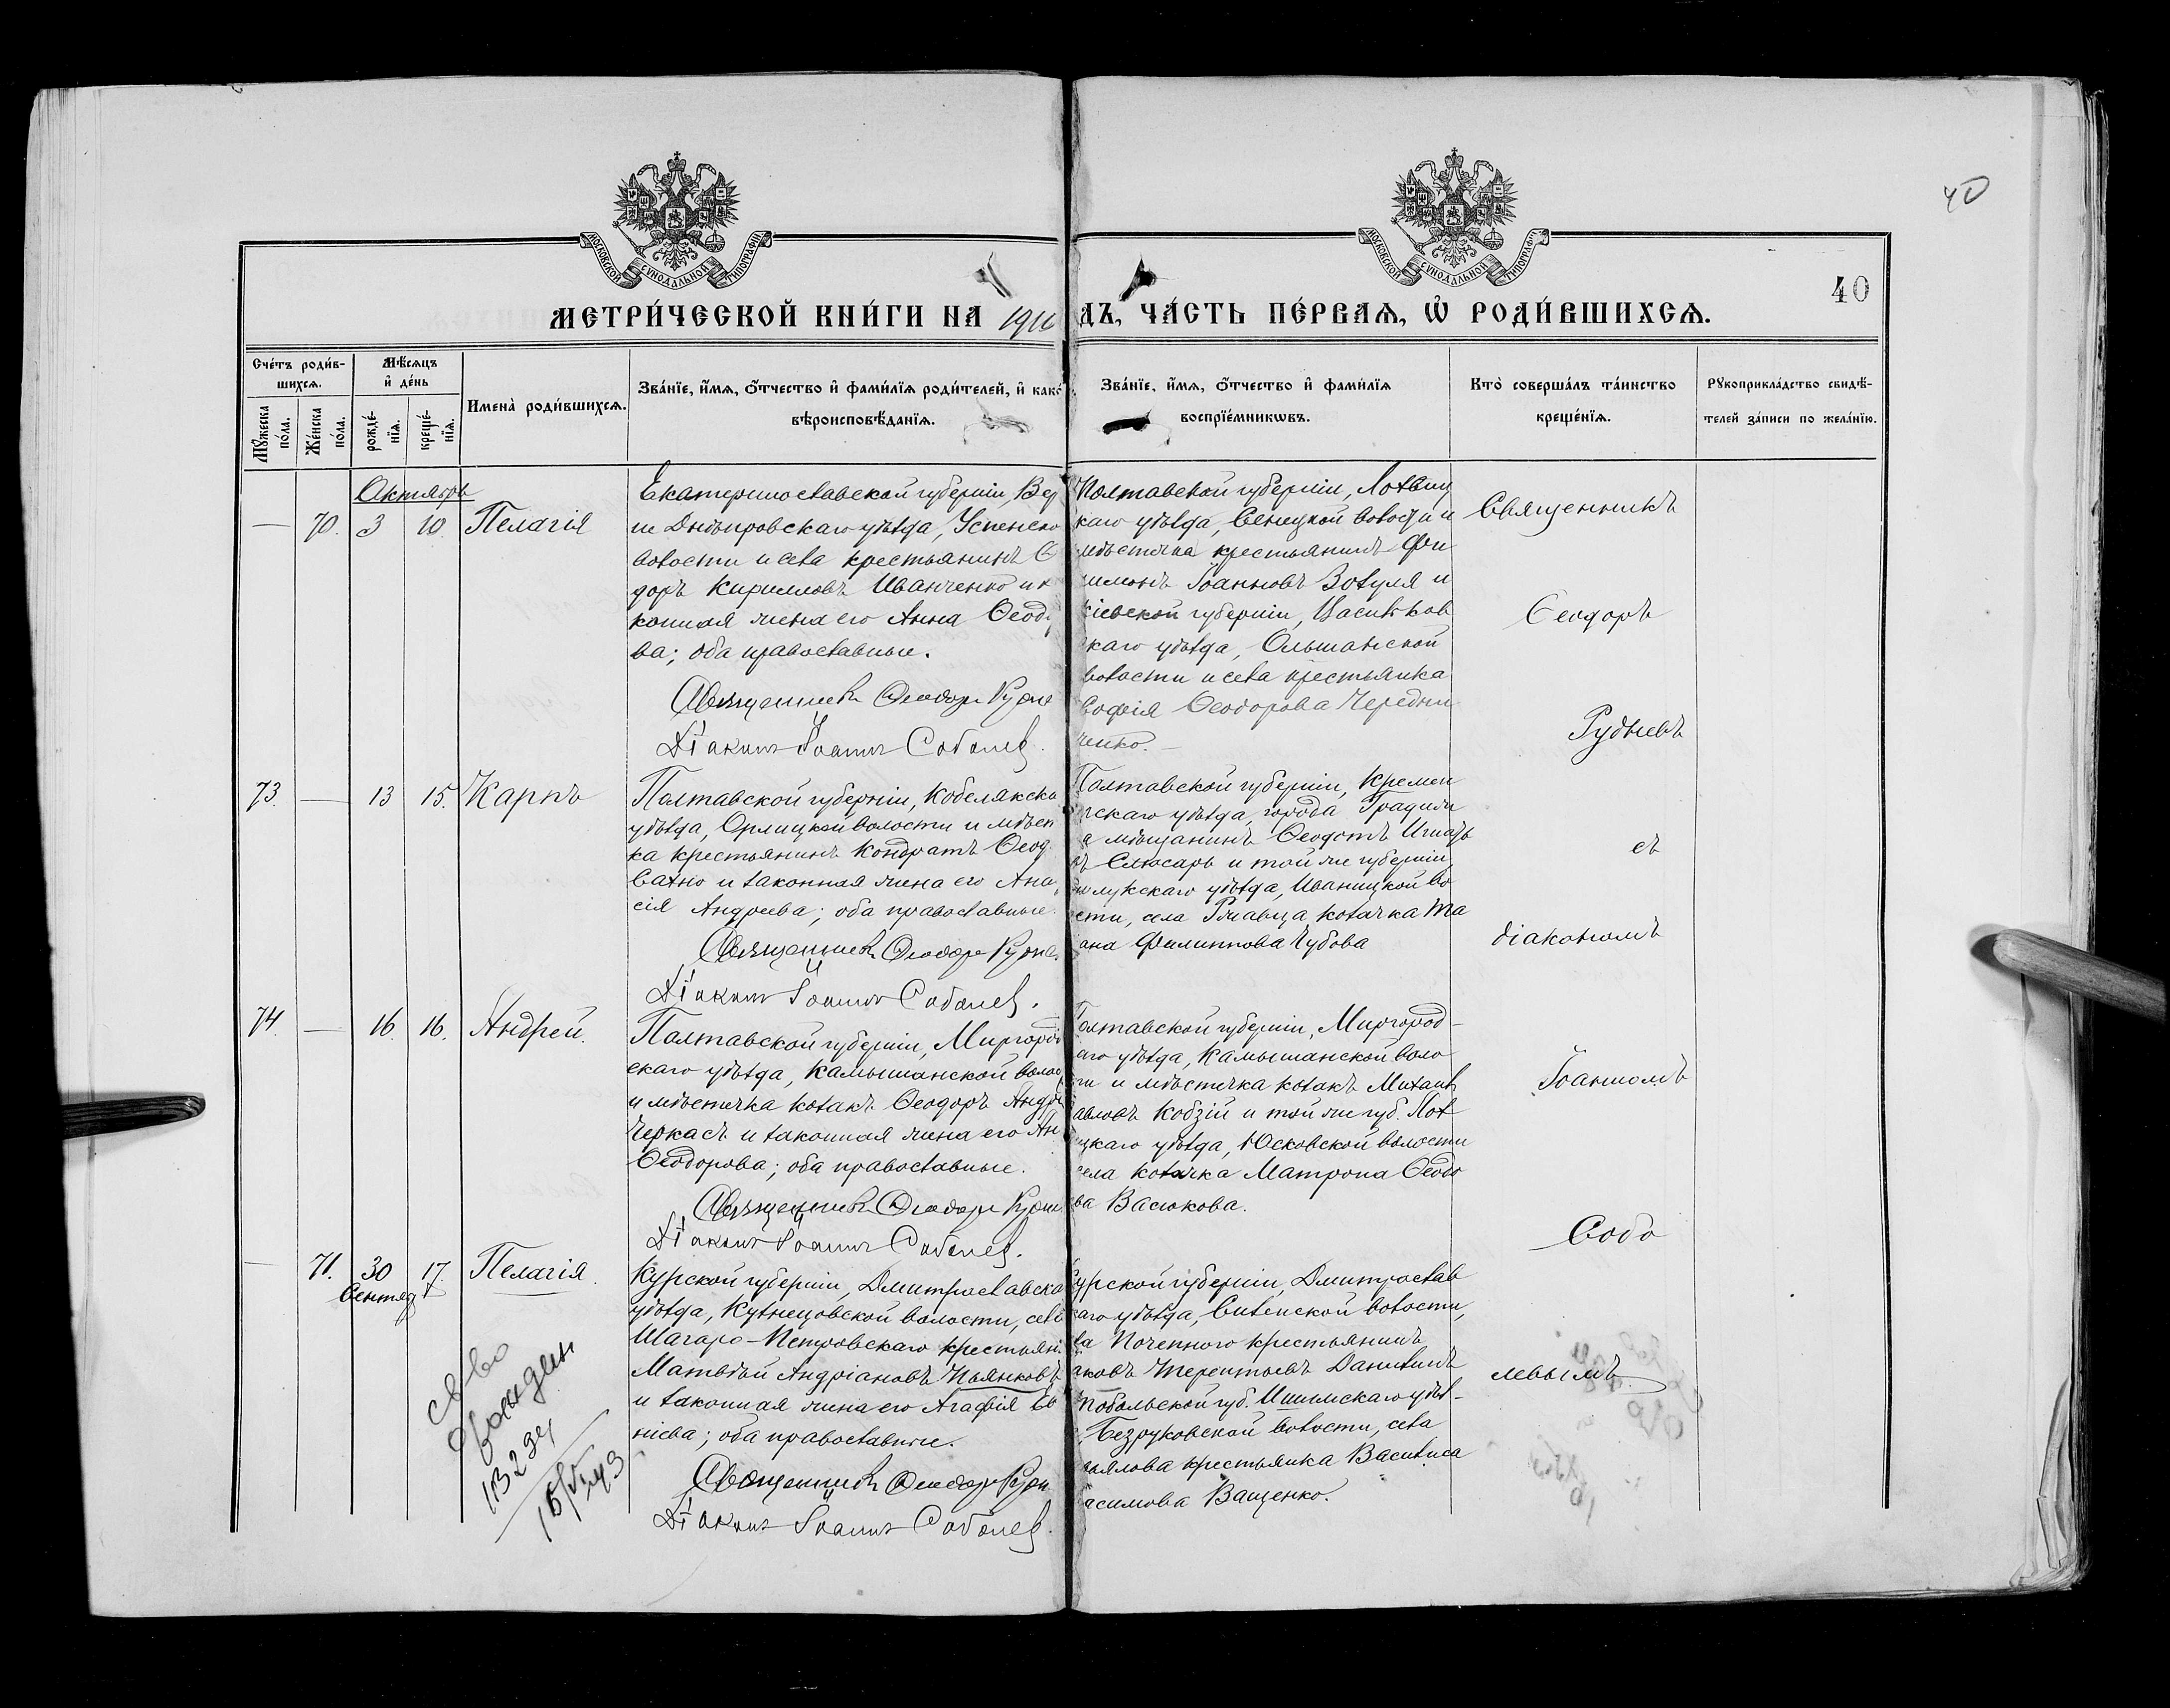 40
40
МОСКОВСКОЙ СУНОДАЛЬНОЙ ТИПОГРАФІИ
МОСКОВСКОЙ СУНОДАЛЬНОЙ ТИПОГРАФІИ
МЕТРИ́ЧЕСКОЙ КНИ́ГИ НА 191
ДЪ, ЧА́СТЬ ПЕ́РВАѦ, Ѡ҆ РОДИ́ВШИХСѦ.
Сче́тъ роди́в-
шихсѧ.
Мꙋ́жеска по́ла.
Же́нска по́ла.
Мѣ́сѧцъ
и҆ де́нь
рожде́-
нїѧ.
креще́-
нїѧ.
Имена̀ роди́вшихсѧ.
Зва́нїе, и҆́мѧ, ѻ҆́тчество и҆ фами́лїѧ роди́телей, и҆ како
вѣроисповѣ́данїѧ.
Зва́нїе, и҆́мѧ, ѻ҆́тчество и҆ фами́лїѧ
воспрїе́мникѡвъ.
Кто̀ соверша́лъ та́инство
креще́нїѧ.
Рꙋкоприкла́дство свидѣ́-
телей за́писи по жела́нїю.
Октябрь
— 70. 3 10 Пелагія
Екатеринославской губерніи, Вер
не Днѣпровскаго уѣзда, Успенско
волости и села крестьянинъ Ѳ
доръ Кирилловъ Иванченко и
конная жена его Анна Ѳеодо
ва; оба православные.
Священникъ Ѳеодоръ Рудне
Діаконъ Іоаннъ Соболев.
Полтавской губерніи, Лохвиц
каго уѣзда, Сенецкой волости и
мѣстечка крестьянинъ Фи
лимонъ Іоанновъ Зозуля и
Кіевской губерніи, Васильков
скаго уѣзда, Ольшанской
волости и села крестьянка
Софія Ѳеодорова Чередни
ченко. —
73. — 13 15. Карпъ
Полтавской губерніи, Кобелякска
уѣзда, Орлицкой волости и мѣст
ка крестьянинъ Кондратъ Ѳеод
Вахно и законная жена его Ана
сія Андреева; оба православные.
Священникъ Ѳеодоръ Рудне
Діаконъ Іоаннъ Соболев.
Полтавской губерніи, Кремен
гскаго уѣзда, города Градиж
а мѣщанинъ Ѳеодотъ Игнать
ъ Слюсарь и той же губерніи,
илукскаго уѣзда, Иваницкой во
сти, села Ржавца козачка Та
ана Филиппова Чубова
74. — 16. 16. Андрей.
Полтавской губерніи, Миргород
скаго уѣзда, Камышанской волос
и мѣстечка козакъ Ѳеодоръ Андре
Черкасъ и законная жена его Ан
Ѳеодорова; оба православные.
Священникъ Ѳеодоръ Рудне
Діаконъ Іоаннъ Соболев.
Полтавской губерніи, Миргород-
аго уѣзда, Камышанской воло
ти и мѣстечка козакъ Михаил
авловъ Кобзій и той же губ. Лох
ицкаго уѣзда, Юсковской волости
села козачка Матрона Ѳеодо
ва Васюкова.
— 71. 30 17. Пелагія.
Сентяб
Курской губерніи, Дмитріевска
уѣзда, Кузнецовской волости, сел
Шагаро-Петровскаго крестьян
Матвѣй Андріановъ Пьянковъ
и законная жена его Агафія Ев
ніева; оба православные.
Священникъ Ѳеодоръ Рудн
Діаконъ Іоаннъ Соболев.
урской губерніи, Дмитріев
каго уѣзда, Селенской волости,
ла Почепного крестьянинъ
аковъ Терентьевъ Данилинъ
Тобольской губ. Ишимскаго уѣз-
Безруковской волости, села
ьялова крестьянка Василиса
асимова Ващенко.
Священникъ
Ѳеодоръ
Рудневъ
съ
діакономъ
Іоанномъ
Собо
левымъ.